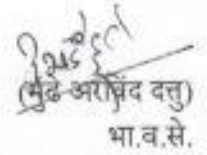 (मुंढे अरविंद दत्तु)
भा.व.से.